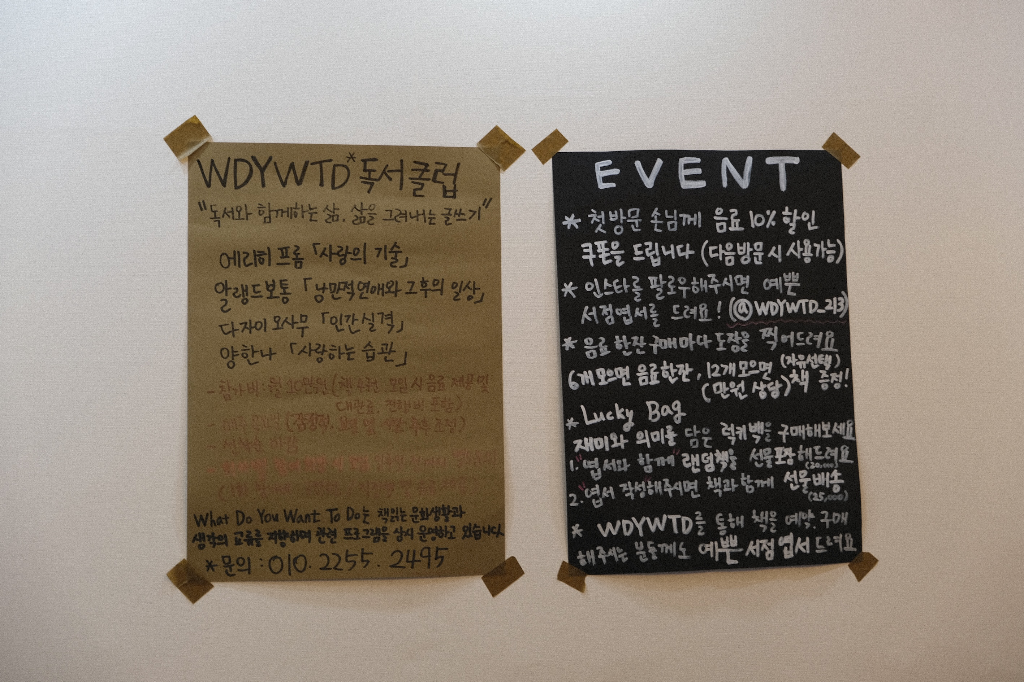 WDYWTD*독서클럽
"독서와 함께하는 삶, 삶을 그려내는 글쓰기"
에리히 프롬 「사랑의 기술」
알랭드보통 「낭만적연애와 그후의 일상」
다자이 오사무 「인간실격」
양한나 「사랑하는 습관」
- 참가비 : 월 10만원
What Do You Want To Do는 책읽는 문화생활과
생각의 교류를 지향하며 관련 프로그램을 상시 운영하고 있습니다.
* 문의 : 010. 2255. 2495
EVENT
* 첫방문 손님께 음료 10% 할인
쿠폰을 드립니다 (다음방문 시 사용가능)
* 인스타를 팔로우해주시면 예쁜
서점엽서를 드려요! (@WDYWTD_213)
* 음료 한잔 구매마다 도장을 찍어드려요
6개 모으면 음료한잔, 12개 모으면 (자유선택)
(만원 상당) 책 증정!
* Lucky Bag
재미와 의미를 담은 럭키백을 구매해보세요
1. "엽서와 함께" 랜덤책을 선물포장해드려요
(20,000)
2. "엽서 작성해주시면 책과 함께 선물배송
(25,000)
* WDYWTD를 통해 책을 예약, 구매
해주시는 분들께도 예쁜 서점 엽서 드려요